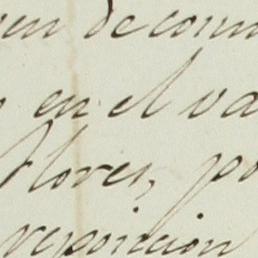 en de com
en el va
Flores, po
reposicion